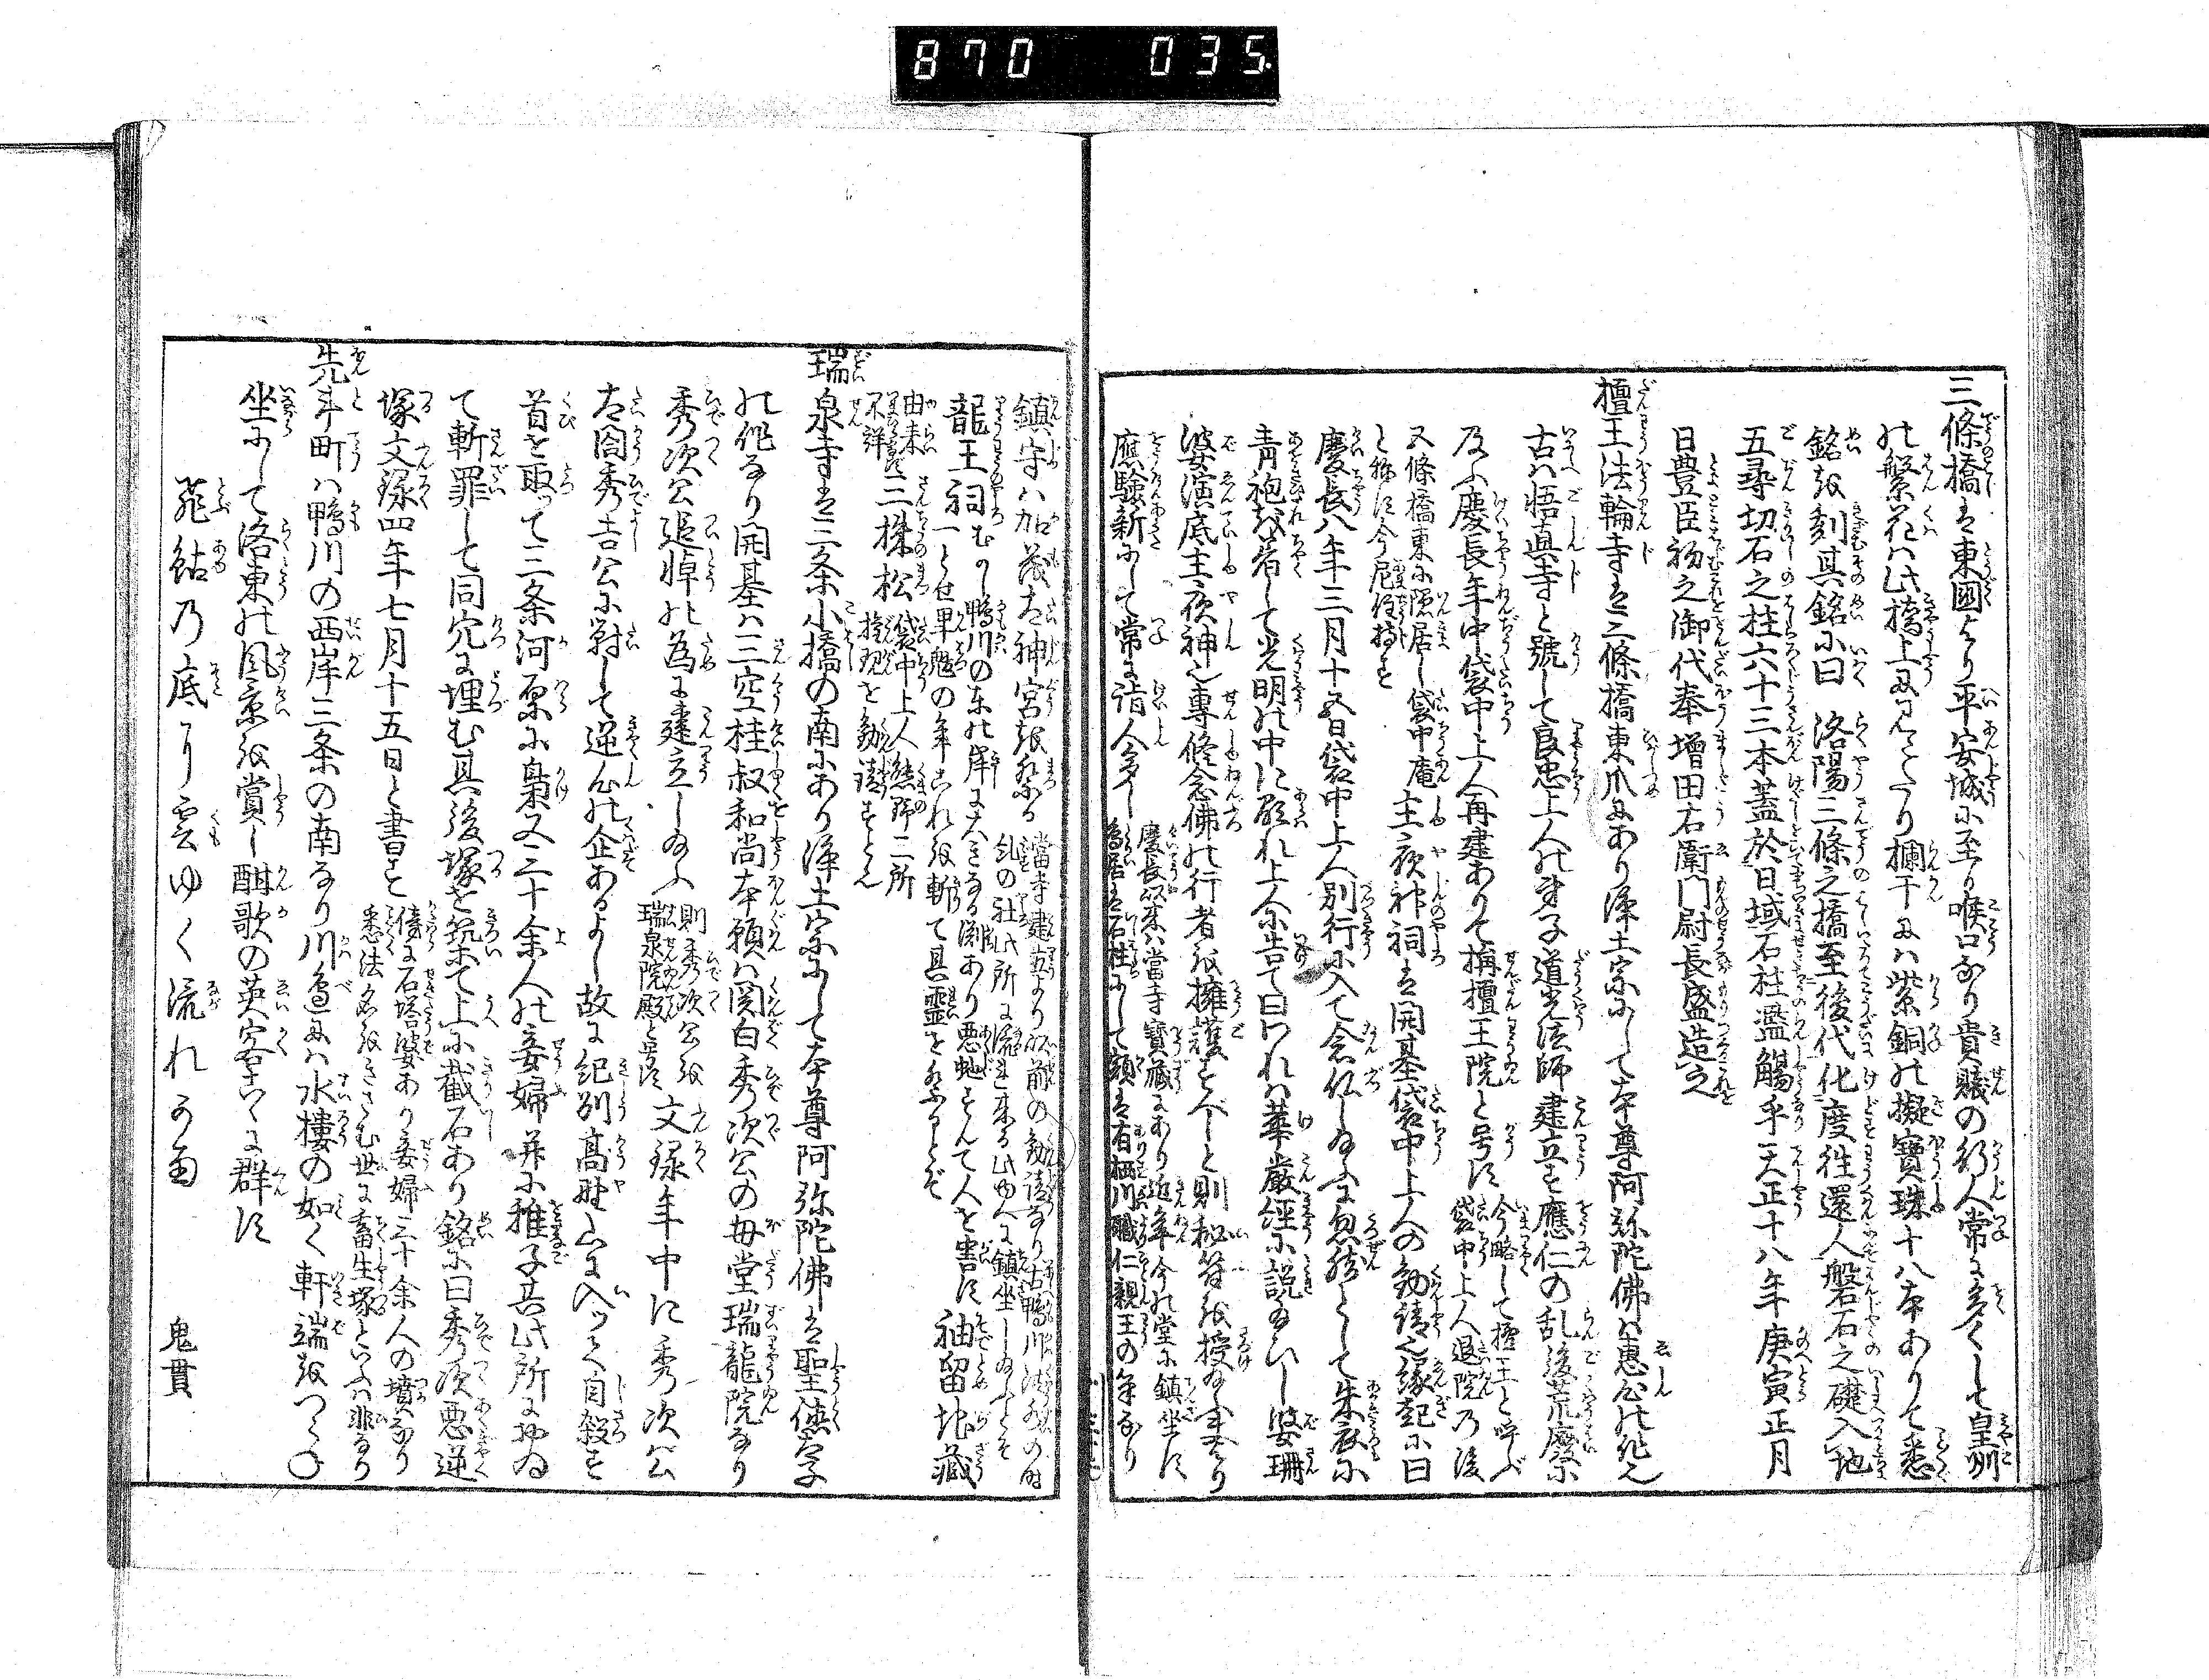 870 035.
三條橋は東國より平安城に至る喉口なり貴賤の行人常に多くして皇州
の繁花は此橋上に見えたり欄干には紫銅の擬寶珠十八本ありて悉
銘を刻其銘に曰 洛陽三條之橋至後代化度往還人磐石之礎入地
五尋切石之柱六十三本蓋於日域石柱濫觴乎天正十八年庚寅正月
日豊臣初之御代奉増田右衛門尉長盛造之
檀王法輪寺は三條橋東爪にあり浄土宗にして本尊阿弥陀佛は恵心の作也
古は悟真寺と號して良忠上人の弟子道光法師建立す應仁の乱後荒廢に
及ぶ慶長年中袋中上人再建ありて栴檀王院と号す
今略して檀王と呼ぶ
袋中上人退院の後
五條橋東に隠居し袋中庵
と称す今尼住持す
主夜神祠は開基袋中上人の勧請也縁起に曰
慶長八年三月十五日袋中上人別行に入て念仏し給ふに忽然として朱衣に
青袍を着して光明の中に顕れ上人に告て曰われは華嚴経に説給ひし婆珊
婆演底主夜神也専修念佛の行者を擁護すべしと則秘符を授給ふ
應驗新にして常に詣人多し
慶長以来は當寺寶蔵にあり近年今の堂に鎮坐す
鳥居は石柱にして額は有栖川職仁親王の筆なり
鎮守は加茂太神宮を祭る
當寺建立より以前の勧請なり古鴨川洪水の時
乱の社此所に流れ来る此ゆへに鎮坐し給ふとぞ
龍王祠
むかし鴨川の東の岸に大きなる渕あり悪蛇すんで人を害す
一とせ旱魃の年これを斬て其霊を祭るとぞ
袖留地蔵
由来
不詳
三株松
袋中上人熊野三所
権現を勧請すとぞ
瑞泉寺は三条小橋の南にあり浄土宗にして本尊阿弥陀佛は聖徳太子
の作なり開基は三空桂叔和尚本願は関白秀次公の母堂瑞龍院なり
秀次公追悼の為に建立し給ふ
則秀次公を
瑞泉院殿と号す
文禄年中に秀次公
太閤秀吉公に對して逆心の企あるよし故に紀刕高野山に入つて自殺す
首を取つて三条河原に梟又三十余人の妾婦并に稚子其此所にゐ
て斬罪して同穴に埋む其後塚を築て上に截石あり銘に曰秀次悪逆
塚文禄四年七月十五日と書す
傍に石塔婆あり妾婦三十余人の墳なり
悉法名をきざむ世に畜生塚といふは非なり
先斗町は鴨川の西岸三条の南なり川邉には水樓の如く軒端をつらね
坐にして洛東の風景を賞し酣歌の英客こゝに群す
飛鮎の底に雲ゆく流れかな
鬼貫